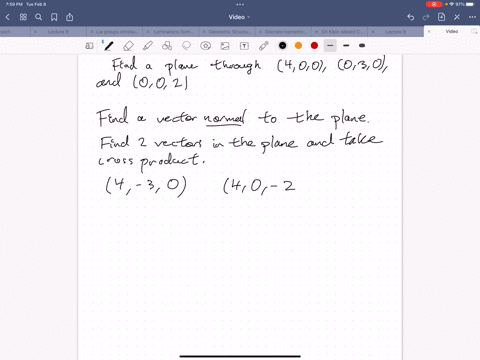 7:59 PM Tue Feb 8
91%
Video
Lecture 9
Lecture 9
Video
Find a plane through (4,0,0), (0,3,0),
and (0,0,2)
Find a vector normal to the plane.
Find 2 vectors in the plane and take
cross product.
(4,-3,0) (4,0,-2